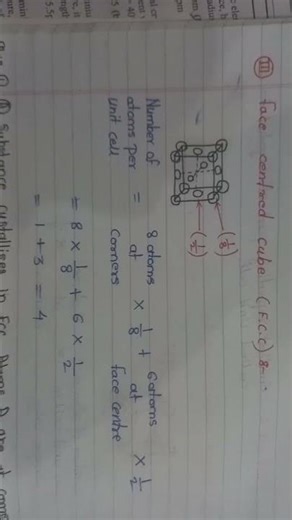 III face centred cube (F.C.C) :-
(1/8)
(1/2)
Number of atoms per unit cell = 8 atoms at corners × 1/8 + 6 atoms at face centre × 1/2
= 8 × 1/8 + 6 × 1/2
= 1 + 3 = 4
Substance crystallises in FCC Atoms are at